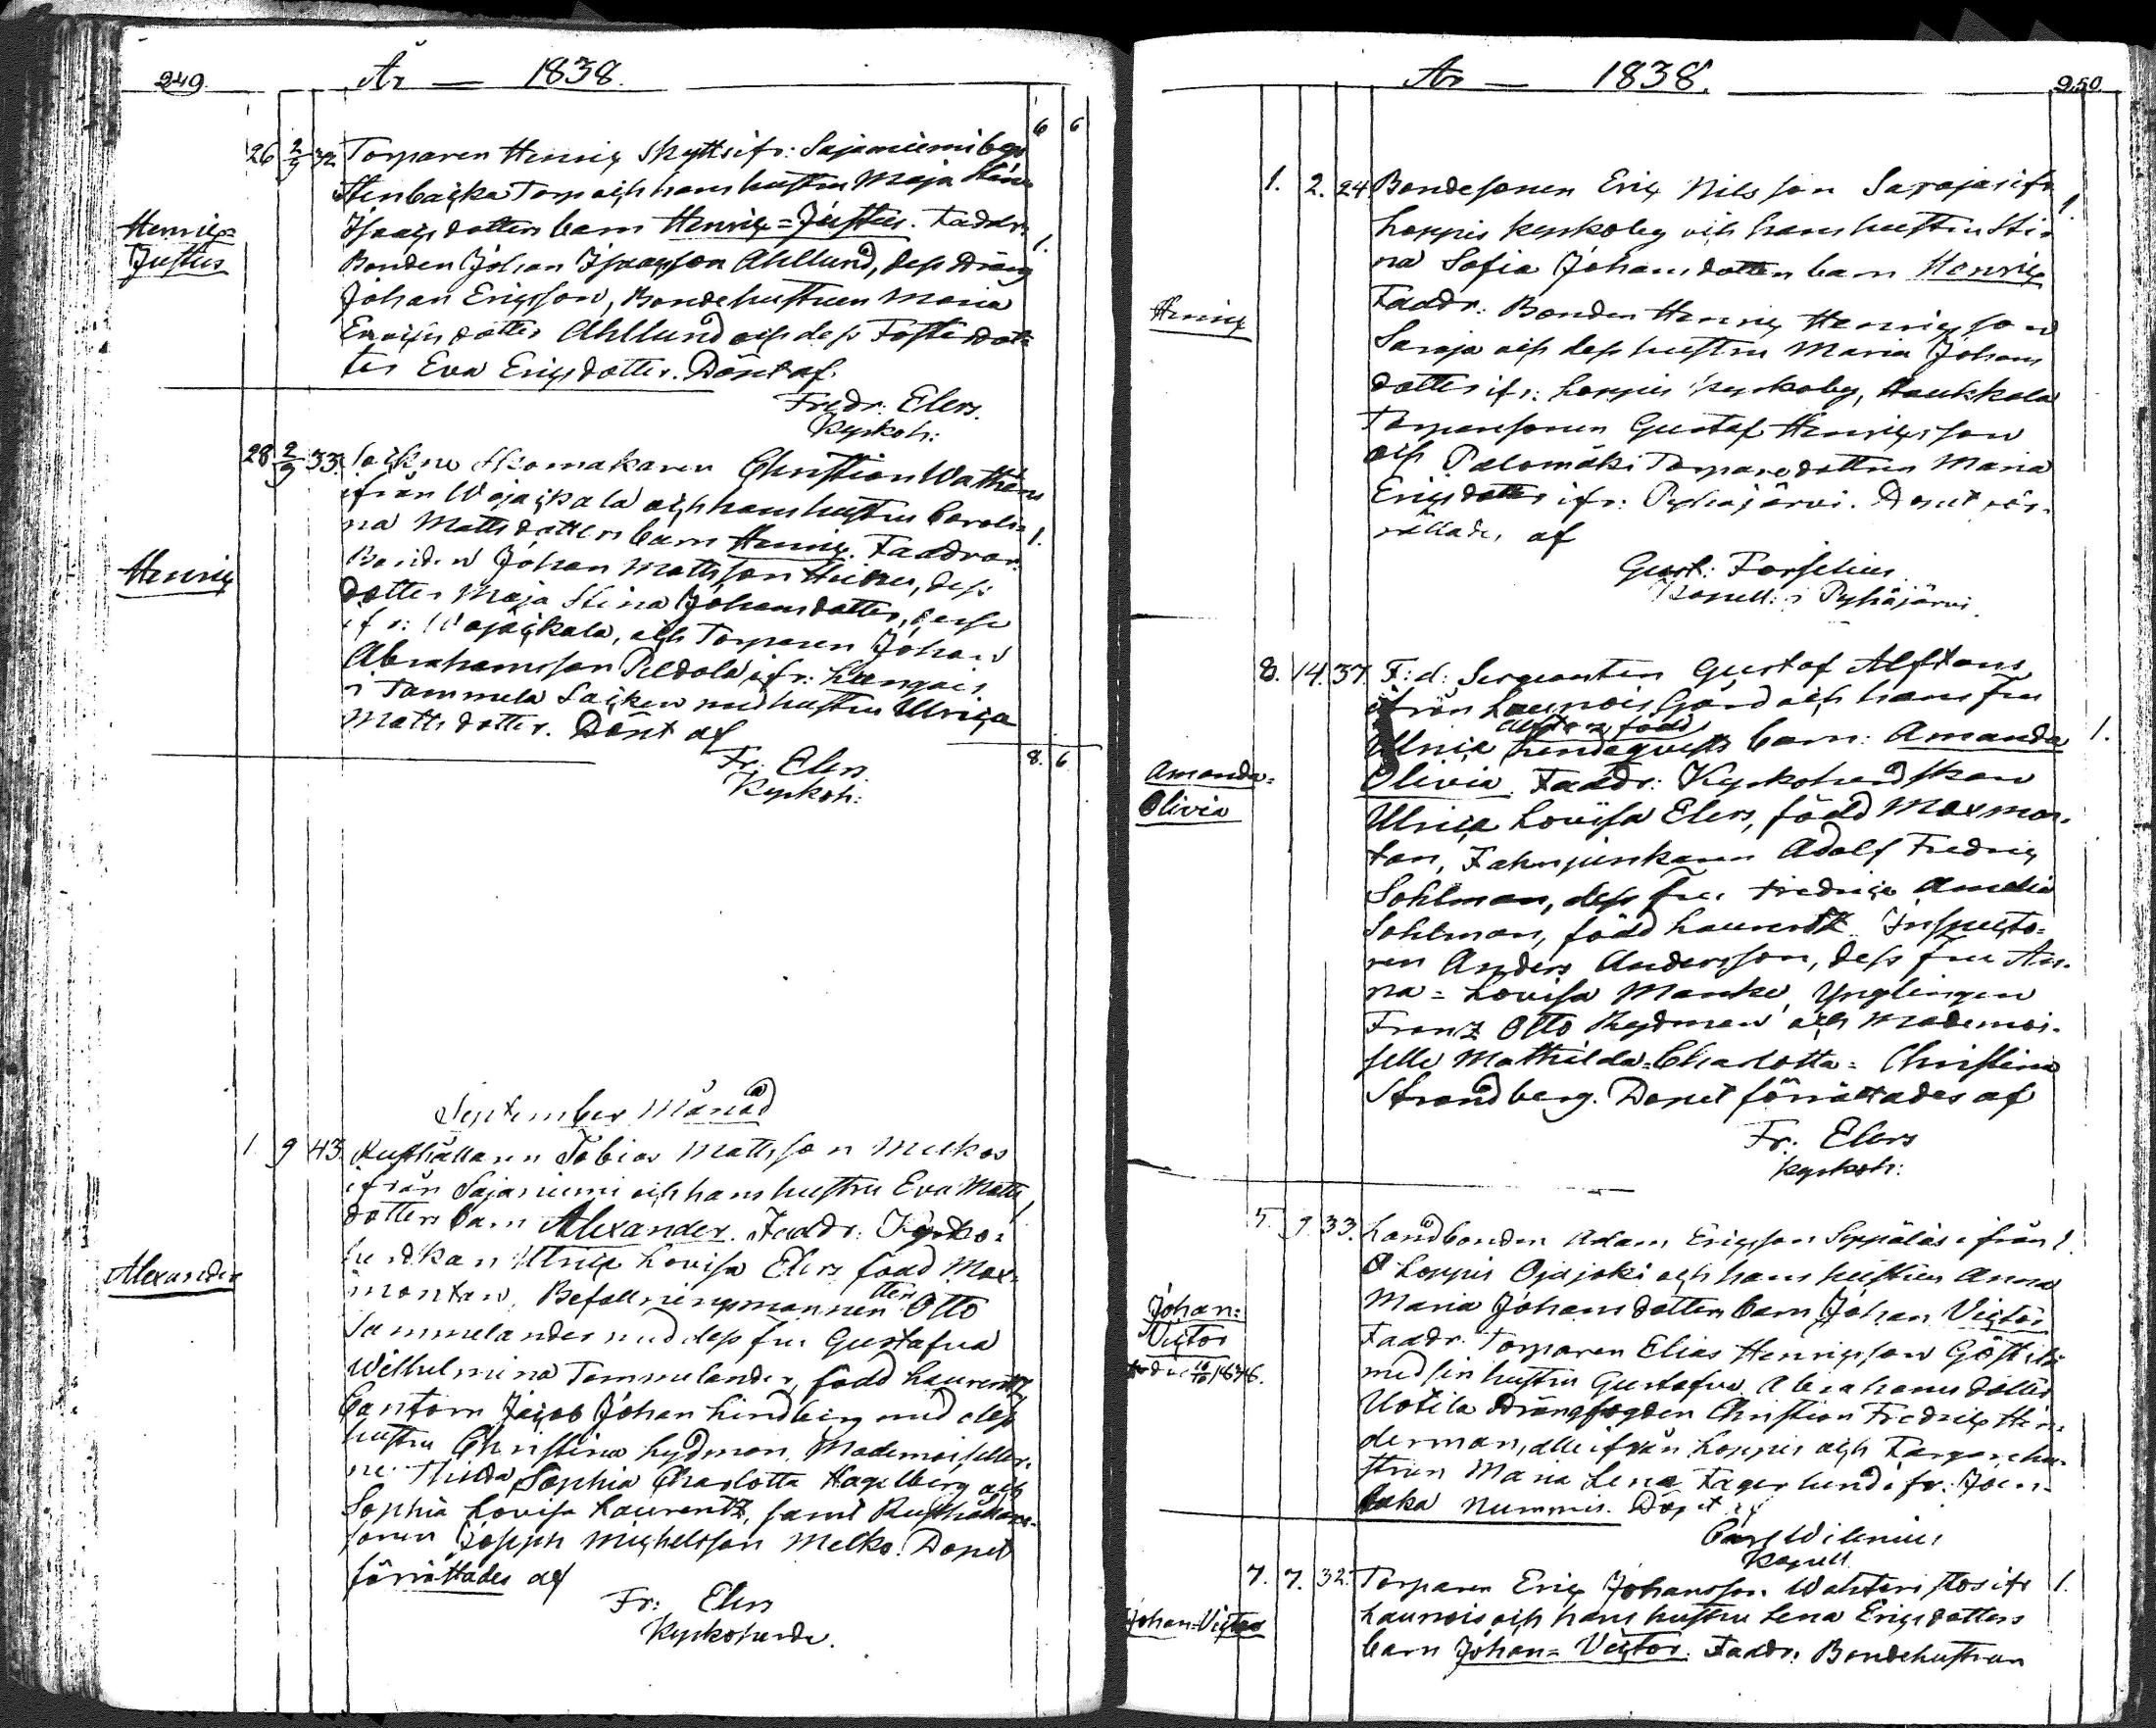 249.
År — 1838.
6 6
26 2/9 32 Torparen Henric Skyttsifr: Sajaniemi by
Stenbacka Torp och hans hustru Maja Stina
Henric=
Justus
Isaacs dotters barn Henric=Justus. Faddr:
1.
Bonden Johan Isaacsson Ahllund, dess Dräng
Johan Ericsson, Bondehustrun Maria
Ericsdotter Ahllund och dess Fosterdot=
ter Eva Ericsdotter. Döpt af
Fredr: Elers.
Kyrkoh:
28 2/9 33. Sockne Skomakaren Christian Wathens
ifrån Wojackala och hans hustru Caroli=
na Mattsdotters barn Henric. Faddrar 1.
Henric
Bonden Johan Mattsson, dess
dotter Maja Stina Johansdotter, desse
ifr: Wojackala, och Torparen Johan
Abrahamsson Peldola ifr:
i Tammela Socken med hustru Ulrica
Mattsdotter. Döpt af
Fr: Elers.
Kyrkoh:
8. 6
September Månad
1. 9 43. Rusthållaren Tobias Mattsson Melkos
ifrån Sajaniemi och hans hustru Eva Matts
dotters barn Alexander. Faddr: Kyrko= 1
Alexander
herdskan Ulrica Lovisa Elers född Mox=
montan, Befallningsmannen Otto
Tammelander med dess fru Gustafva
Wilhelmina Tammelander, född Laurentz
Cantorn Jacob Johan Lindberg med dess
hustru Christina Lydman, Mademoiseller=
ne Sophia Charlotta Hagelberg och
Sophia Lovisa Laurentz, samt Rusthållare=
sonen Joseph Michelsson Melko. Dopet
förrättades af
Fr: Elers
Kyrkoherde.
År — 1838.
250.
1. 2. 24 Bondesonen Eric Nilsson Sarajas ifr 1.
Loppis kyrkoby och hans hustru Sti=
na Sofia Johansdotters barn Henric
Henric
Faddr: Bonden Henric Henricsson
Saraja och dess hustru Maria Johans
dotter ifr: Loppis kyrkoby, Haukkala
Torparesonen Gustaf Henricsson
och Palomäki Torparedottren Maria
Ericsdotter ifr: Pyhäjärvi. Dopet för=
rättades af
Gust: Forselius
Kapell: i Pyhäjärvi.
8. 14. 37. F: d: Sergeanten Gustaf Alftans
ifrån Launois Gård och hans fru
Alftan född
Ulrica Lindeqvists barn: Amanda 1.
Amanda=
Olivia
Olivia. Faddr: Kyrkoherdskan
Ulrica Lovisa Elers, född Moxmon=
tan, Fahnjunkaren Adolf Fredric
Sohlman, dess fru Fredrica Amelia
Sohlman, född Laurentz. Inspecto=
ren Anders Andersson, dess fru An=
na=Lovisa Manke, Ynglingen
Franz Otto Rydman och Mademoi=
selle Mathilda=Charlotta=Christina
Strandberg. Dopet förrättades af
Fr: Elers
Kyrkoh:
5. 9. 33. Landbonden Adam Ericsson Seppäläs ifrån 1.
Loppis Ojajoki och hans hustru Anna
Maria Johansdotters barn Johan Victor
Johan=
Victor
Faddr: Torparen Elias Henricsson
med sin hustru Gustafva Abrahamsdotter
Uotila Drängfogden Christian Fredric Hin=
derman, alle ifrån Loppis och Fargarehu=
strun Maria Lena Fagerlund ifr:
Nummis. Döpt af
Carl Wilenius
Kapell.
7. 7. 32. Torparen Eric Johansson ifr 1.
Launois och hans hustru Lena Ericsdotters
Johan=Victor
barn Johan=Victor. Faddr: Bondehustrun